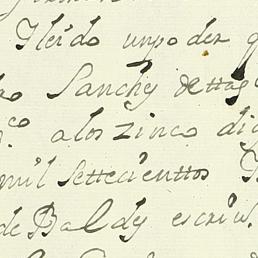 Yleido unpoder q
ro Sanchez dettag
co. alos zinco dia
mil settecienttos
de Baldy escriv.